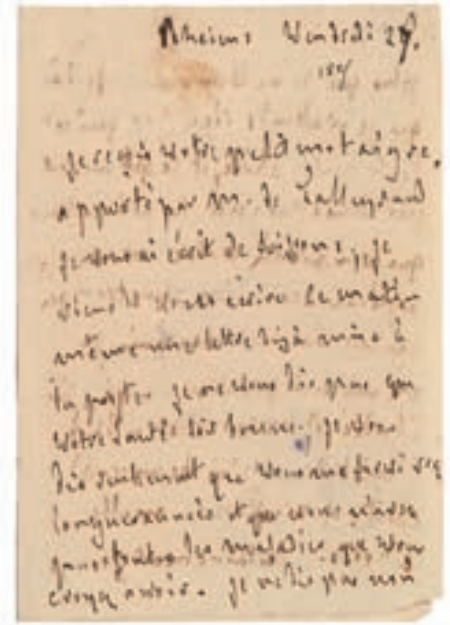 Rheims Vendredi 27.
Je reçois votre petit mot aigre,
apporté par M. de Talleyrand
je vous ai écrit de Soissons, je
viens de vous écrire ce matin
même une lettre déjà mise à
la poste. je ne vous dis pas que
votre santé soit bonne. je vous
dis seulement que vous
et que vous n'avez
les maladies que vous
croyez avoir. je ne dis pas non